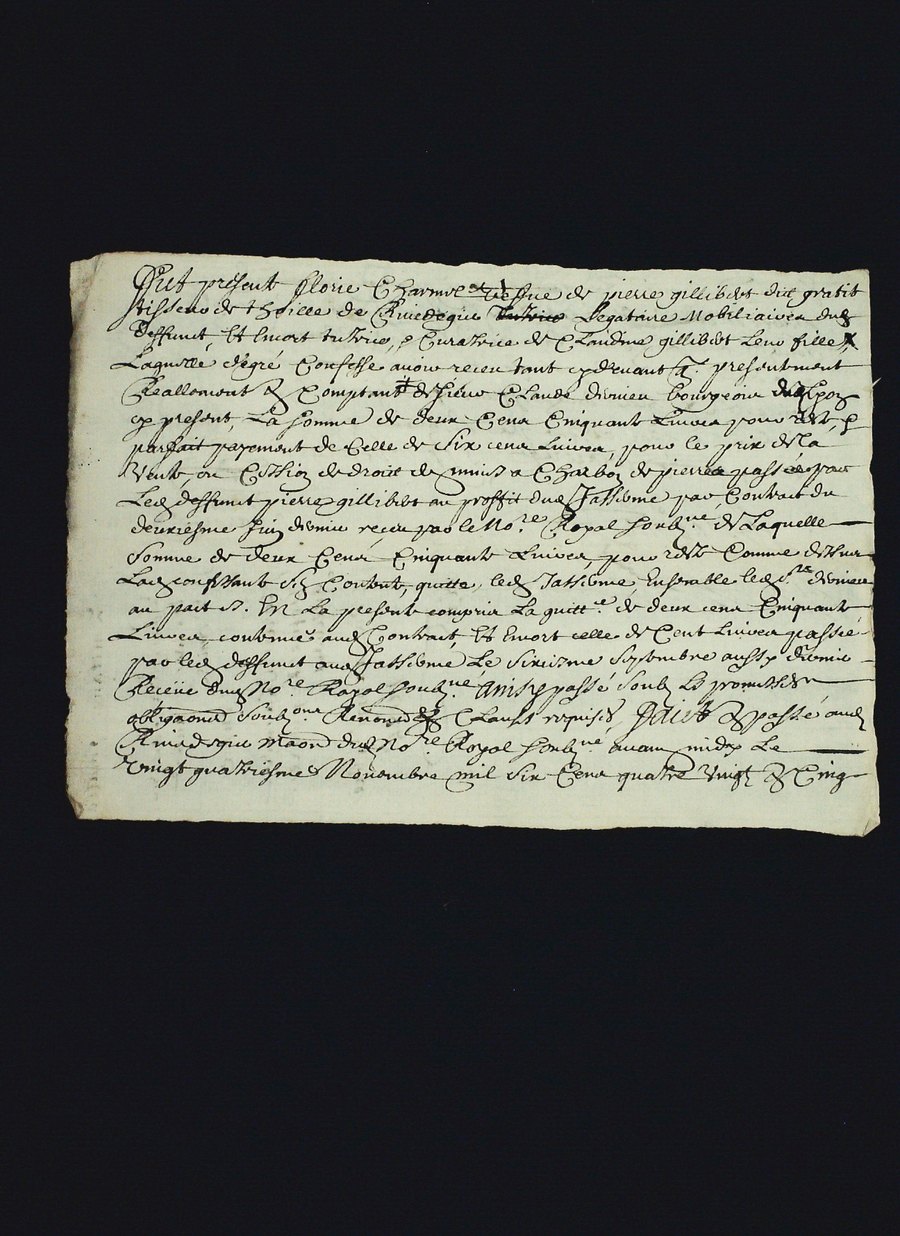 Fut présent Florie Charmet vefue de pierre gillibert dit gratit
tisseur de thoille de Riuedegier Legataire Mobiliaire dud
deffunct, Et Encore tutrice, et Curatrice de Claudine gillibert Leur fille
Laquelle degré Confesse auoir receu tant cydeuant q. présentement
Reallement & Comptant de sieur Claude bourgeois de Lyon
cy present, La somme de deux Cens Cinquante Liures pour reste, et
parfait payement de Celle de Six cens Liures, pour le prix de la
Vente, ou Cession de droit de mines a Charbon de pierre passée par
Led deffunct pierre gillibert au proffit dud par Contract du
deuxiesme Juin dernier receu par le No.re Royal soub.né de Laquelle
Somme de deux Cens Cinquante Liures, pour reste Comme dessus
Lad confessante s'est Contenté, quitte, led Ensemble led s.r
au pact &. En La presente compris La quitt.ce de deux cens Cinquante
Liures contenue aud Contract, Et Encore celle de Cent Liures passée
par led deffunct aud Le Sixiesme Septembre aussy dernier
Receüe dud No.re Royal soub.né. Ainsy passé soubs Les promesses
obligaōns Soub.ons Renonōns & Clauses requises, Faict & passé aud
Riuedegier Maison dud No.re Royal soub.né auant midy Le
Vingt quatriesme Nouembre mil six Cens quatre vingt & Cinq